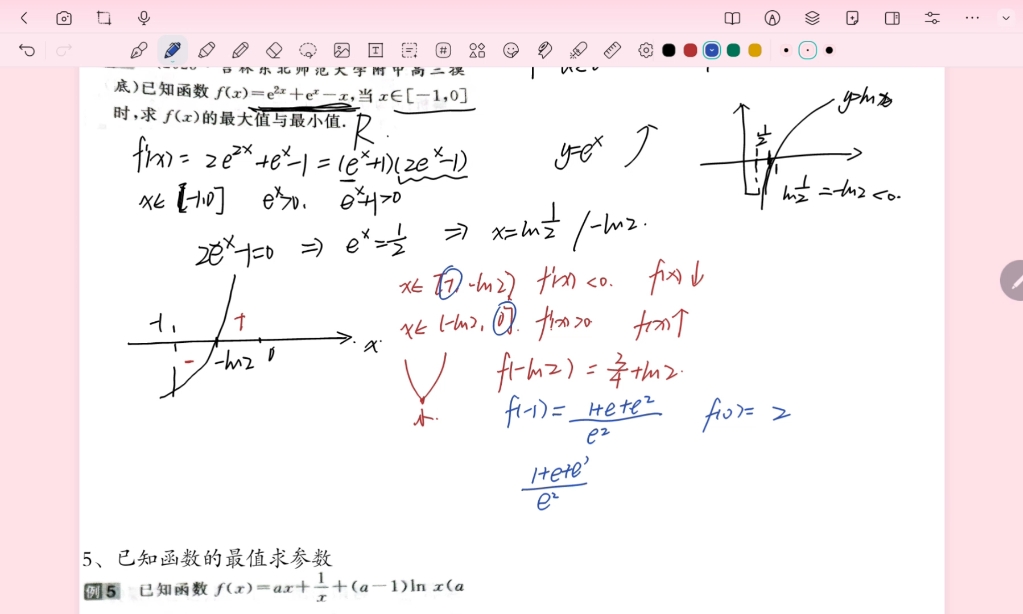 底)已知函数 f(x)=e^{2x}+e^x-x,当 x∈[-1,0]
时,求 f(x)的最大值与最小值.
R.
f'(x) = 2e^{2x}+e^x-1 = (e^x+1)(2e^x-1)
x∈ [-1,0] e^x>0. e^x+1>0
2e^x-1=0 ⇒ e^x=1/2 ⇒ x=ln 1/2 /-ln2.
y=e^x
y=lnx
1/2
1
ln 1/2 =-ln2<0.
-1
+
-
-ln2
0
x.
x∈ [-1,-ln2) f'(x)<0. f(x)↓
x∈ (-ln2, 0]. f'(x)>0 f(x)↑
f(-ln2) = 3/4+ln2.
小.
f(-1) = (1+e+e^2)/e^2 f(0)= 2
(1+e+e^2)/e^2
5、已知函数的最值求参数
例5 已知函数 f(x)=ax+1/x+(a-1)ln x(a